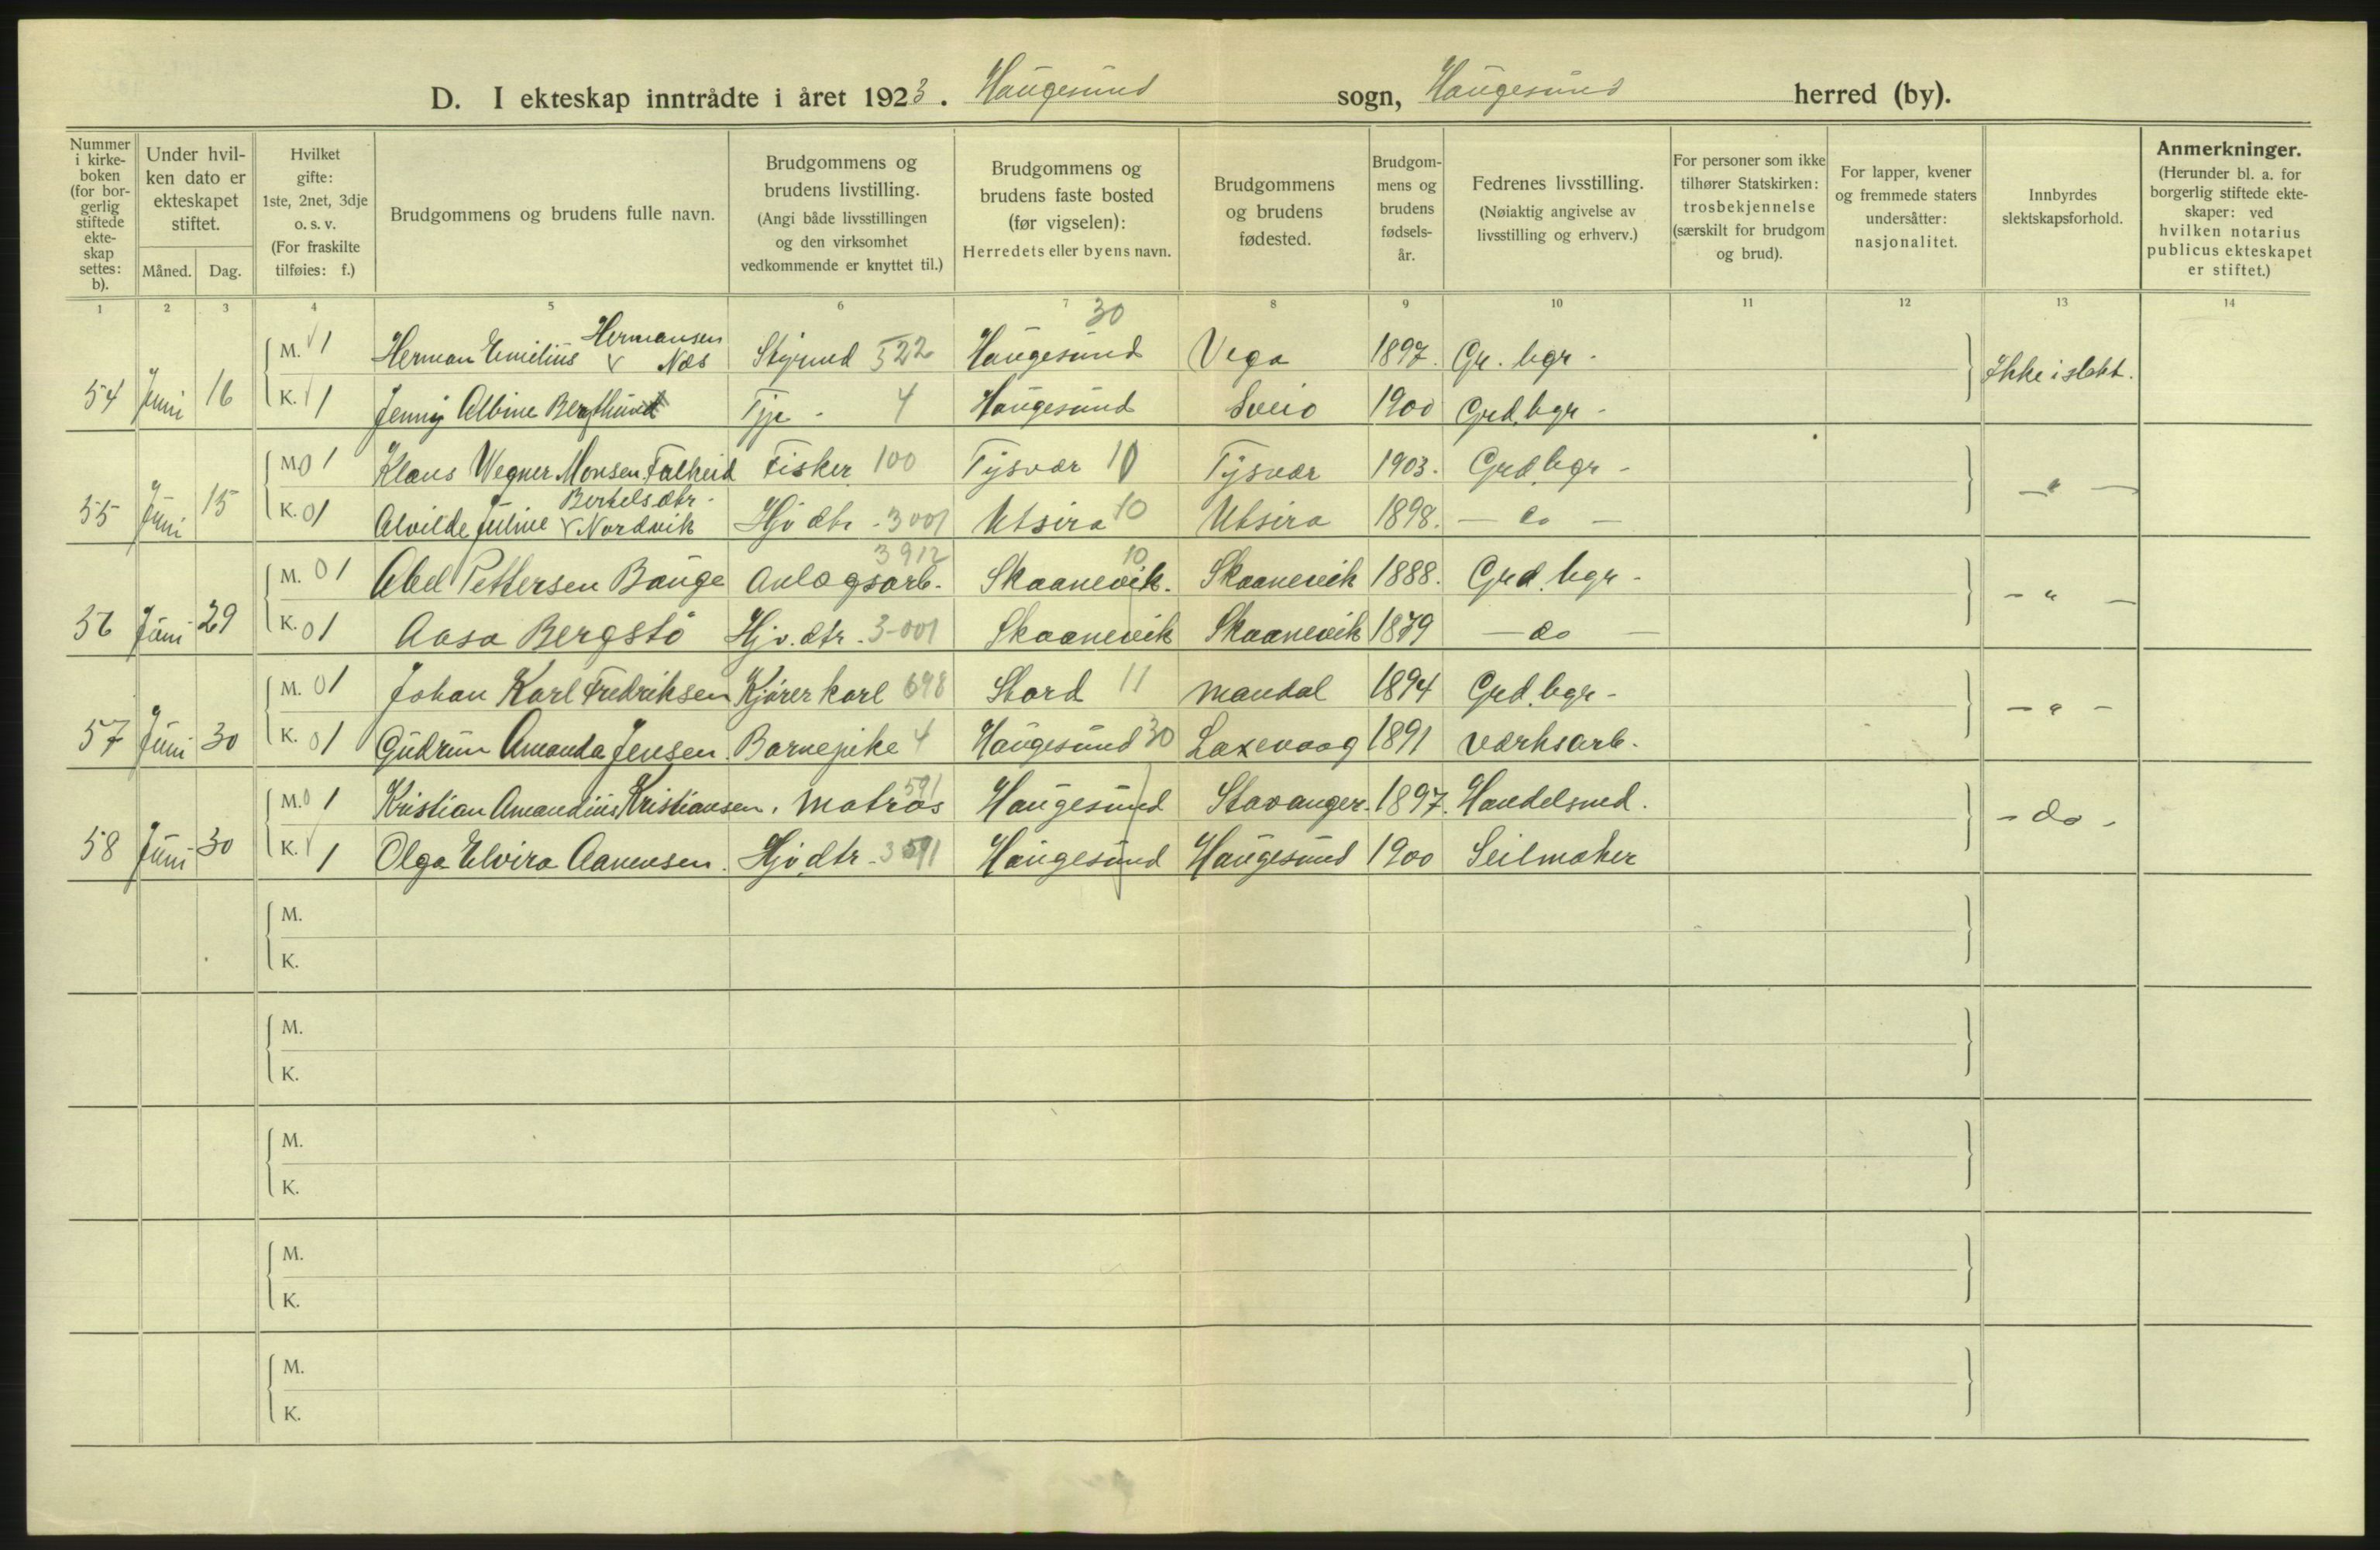 D. I ekteskap inntrådte i året 1923. Haugesund sogn, Haugesund herred (by).
Nummer i kirke-boken (for bor-gerlig stiftede ekte-skap settes: b).
Under hvil-ken dato er ekteskapet stiftet.
Måned. Dag.
Hvilket gifte: 1ste, 2net, 3dje o. s. v. (For fraskilte tilføies: f.)
Brudgommens og brudens fulle navn.
Brudgommens og brudens livstilling. (Angi både livsstillingen og den virksomhet vedkommende er knyttet til.)
Brudgommens og brudens faste bosted (før vigselen): Herredets eller byens navn.
Brudgommens og brudens fødested.
Brudgom-mens og brudens fødsels-år.
Fedrenes livsstilling. (Nøiaktig angivelse av livsstilling og erhverv.)
For personer som ikke tilhører Statskirken: trosbekjennelse (særskilt for brudgom og brud).
For lapper, kvener og fremmede staters undersåtter: nasjonalitet.
Innbyrdes slektskapsforhold.
Anmerkninger. (Herunder bl. a. for borgerlig stiftede ekte-skaper: ved hvilken notarius publicus ekteskapet er stiftet.)
1 2 3 4 5 6 7 8 9 10 11 12 13 14
30
Hermansen
M. 1 Herman Emilius v Næs Styrmd 522 Haugesund Vega 1897. Gr. bgr - Ikke i slekt.
54 Juni 16 K. 1 Jenny Albine Tjp - 4 Haugesund Sveio 1900 Grd.bgr -
M. 0 1 Klaus Wegner Monsen Falkeid Fisker 100 Tysvær 10 Tysvær 1903. Grd.bgr - — " —
Bertelsdtr -
55 Juni 15 K. 0 1 Alvilde Juline v Nordvik Hjv dtr - 3001 Utsira 10 Utsira 1898. — do —
3912 10
M. 0 1 Abel Pettersen Bauge Anlægsarb. Skaanevik. Skaanevik 1888. Grd.bgr - - " -
56 Juni 29 K. 0 1 Aasa Bergstø Hjv. dtr - 3-001 Skaanevik Skaanevik 1879 — do —
M. 0 1 Johan Karl Fredriksen Kjørerkarl 698 Stord 11 Mandal 1894 Grd.bgr - - " -
57 Juni 30 K. 0 1 Gudrun Amanda Jensen. Barnepike 4 Haugesund 30 Laxevaag 1891 Værksarb.
591
M. 0 1 Kristian Amandius Kristiansen. Matros Haugesund Stavanger. 1897. Handelsmd. - do -
58 Juni 30 K. 1 Olga Elvira Aanensen. Hjv.dtr - 3591 Haugesund Haugesund 1900 Seilmaker
M.
K.
M.
K.
M.
K.
M.
K.
M.
K.